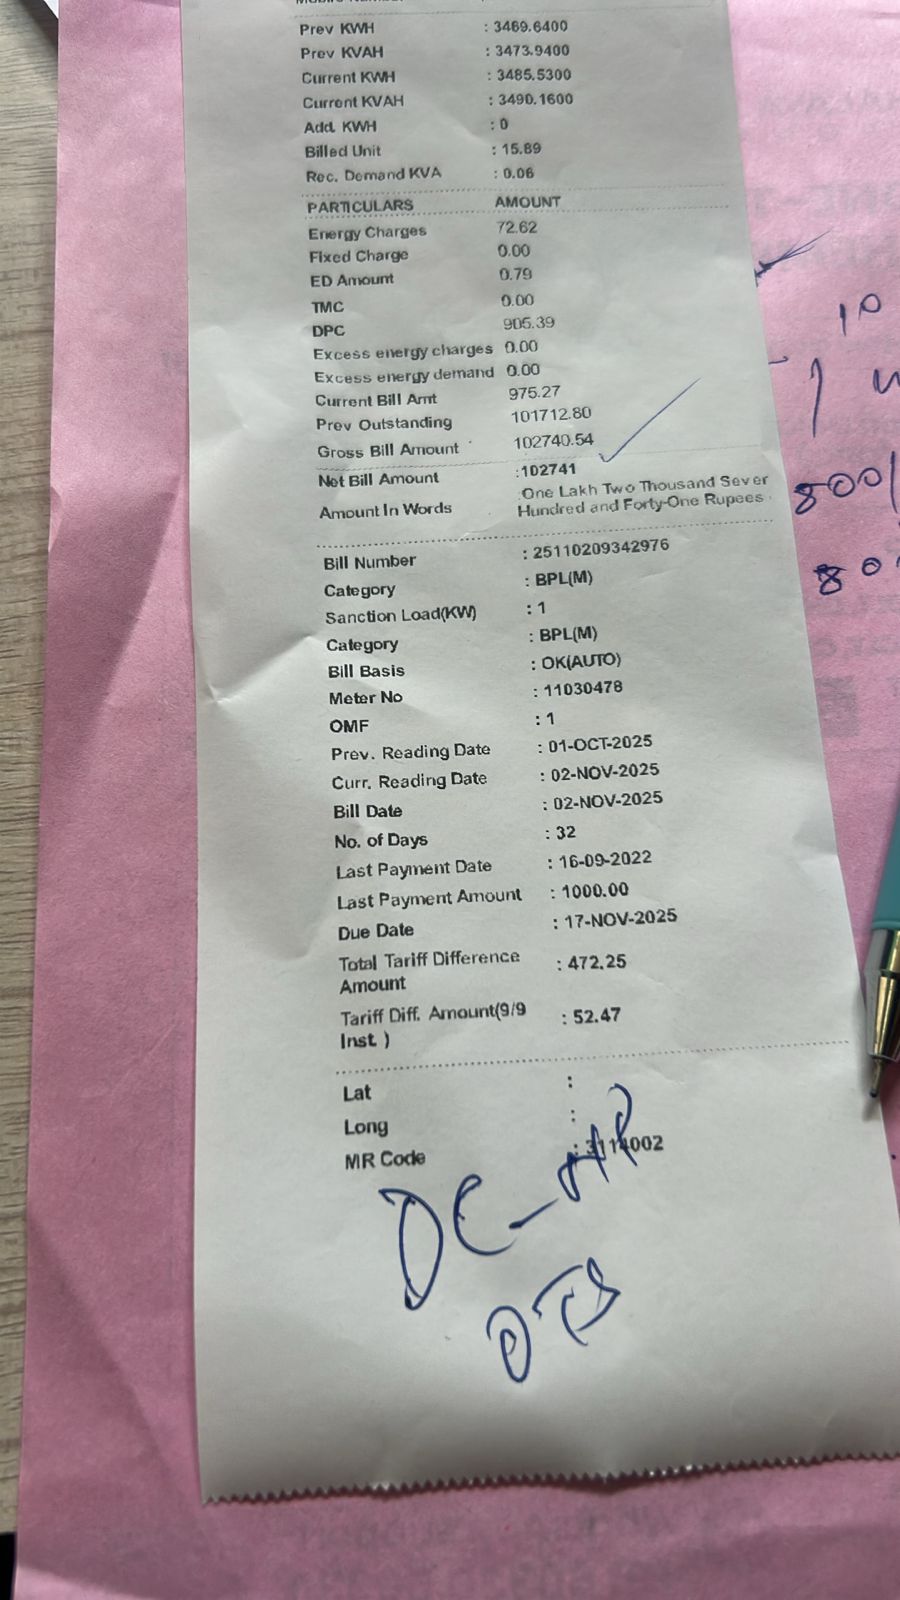 Prev KWH : 3469.6400
Prev KVAH : 3473.9400
Current KWH : 3485.5300
Current KVAH : 3490.1600
Add. KWH : 0
Billed Unit : 15.89
Rec. Demand KVA : 0.06
PARTICULARS AMOUNT
Energy Charges 72.62
Fixed Charge 0.00
ED Amount 0.79
TMC 0.00
DPC 905.39
Excess energy charges 0.00
Excess energy demand 0.00
Current Bill Amt 975.27
Prev Outstanding 101712.80
Gross Bill Amount 102740.54
Net Bill Amount :102741
Amount In Words :One Lakh Two Thousand Sever
Hundred and Forty-One Rupees
Bill Number : 25110209342976
Category : BPL(M)
Sanction Load(KW) : 1
Category : BPL(M)
Bill Basis : OK(AUTO)
Meter No : 11030478
OMF : 1
Prev. Reading Date : 01-OCT-2025
Curr. Reading Date : 02-NOV-2025
Bill Date : 02-NOV-2025
No. of Days : 32
Last Payment Date : 16-09-2022
Last Payment Amount : 1000.00
Due Date : 17-NOV-2025
Total Tariff Difference : 472.25
Amount
Tariff Diff. Amount(9/9 : 52.47
Inst. )
Lat :
Long :
MR Code : 3114002
DC
OTS
10
800/
80